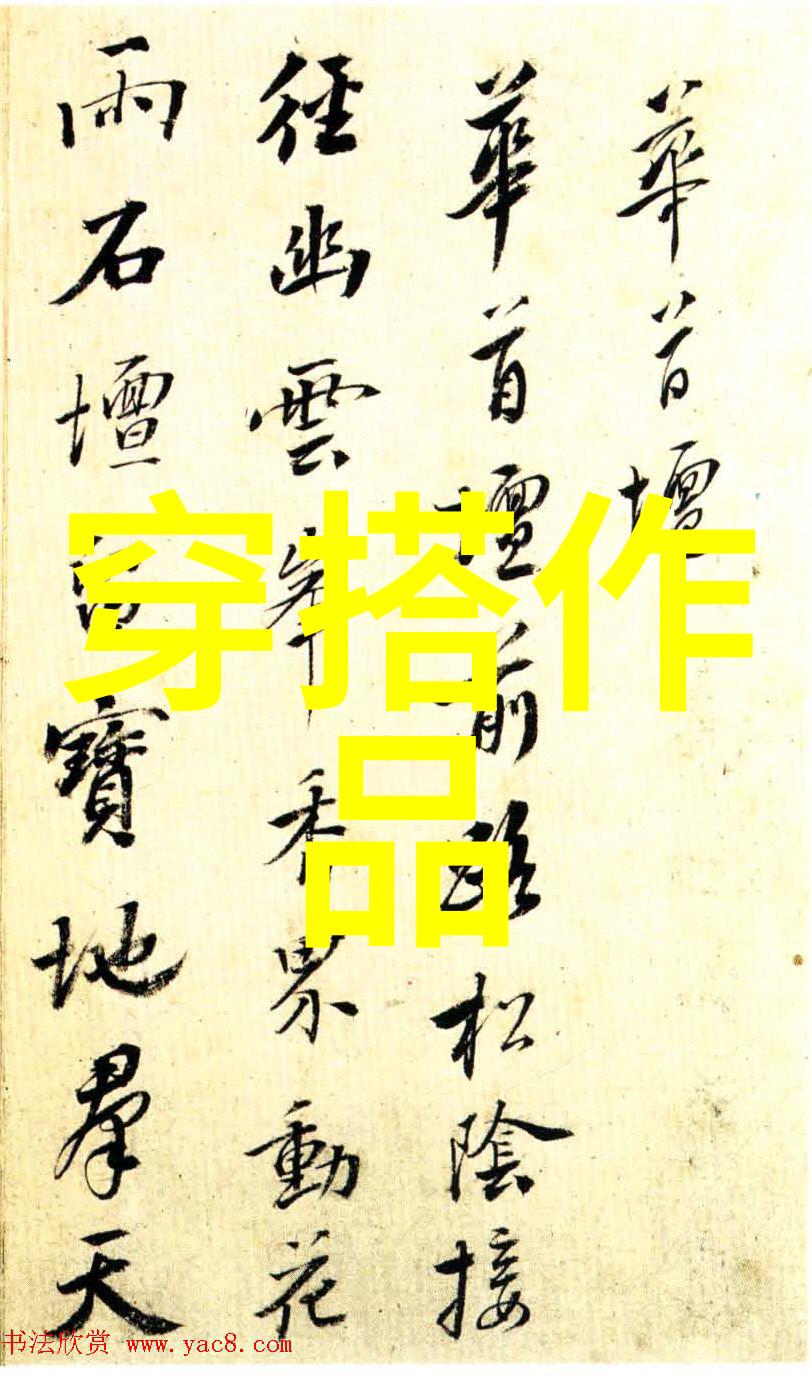 華首壇
華首壇前路松陰接
徑幽雲香界動花
雨石壇寶地羣天
穿搭作
品
书法欣赏 www.yac8.com